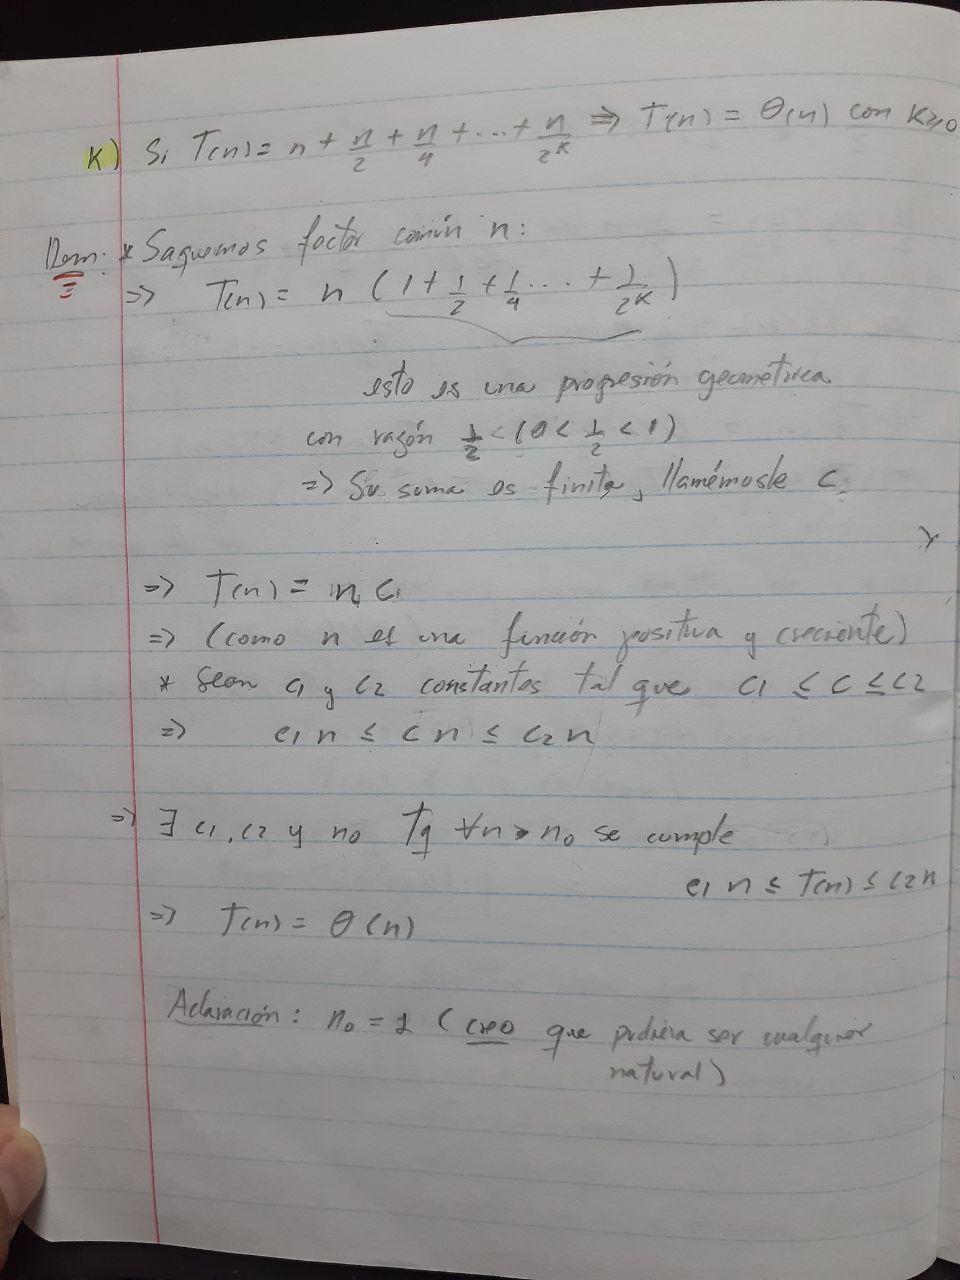 K) Si T(n) = n + n/2 + n/4 + ... + n/2^k ⇒ T(n) = Θ(n) con K≥0
Dem: * Saquemos factor común n:
=> T(n) = n (1 + 1/2 + 1/4 ... + 1/2^k)
esto es una progresión geométrica
con razón 1/2 < (0 < 1/2 < 1)
=> Su suma es finita, llamémosle C.
=> T(n) = n C
=> (como n es una función positiva y creciente)
* Sean C1 y C2 constantes tal que C1 ≤ C ≤ C2
=> C1 n ≤ C n ≤ C2 n
=> ∃ C1, C2 y n0 Tq ∀n > n0 se cumple
C1 n ≤ T(n) ≤ C2 n
=> T(n) = Θ(n)
Aclaración: n0 = 1 (creo que pudiera ser cualquier
natural)